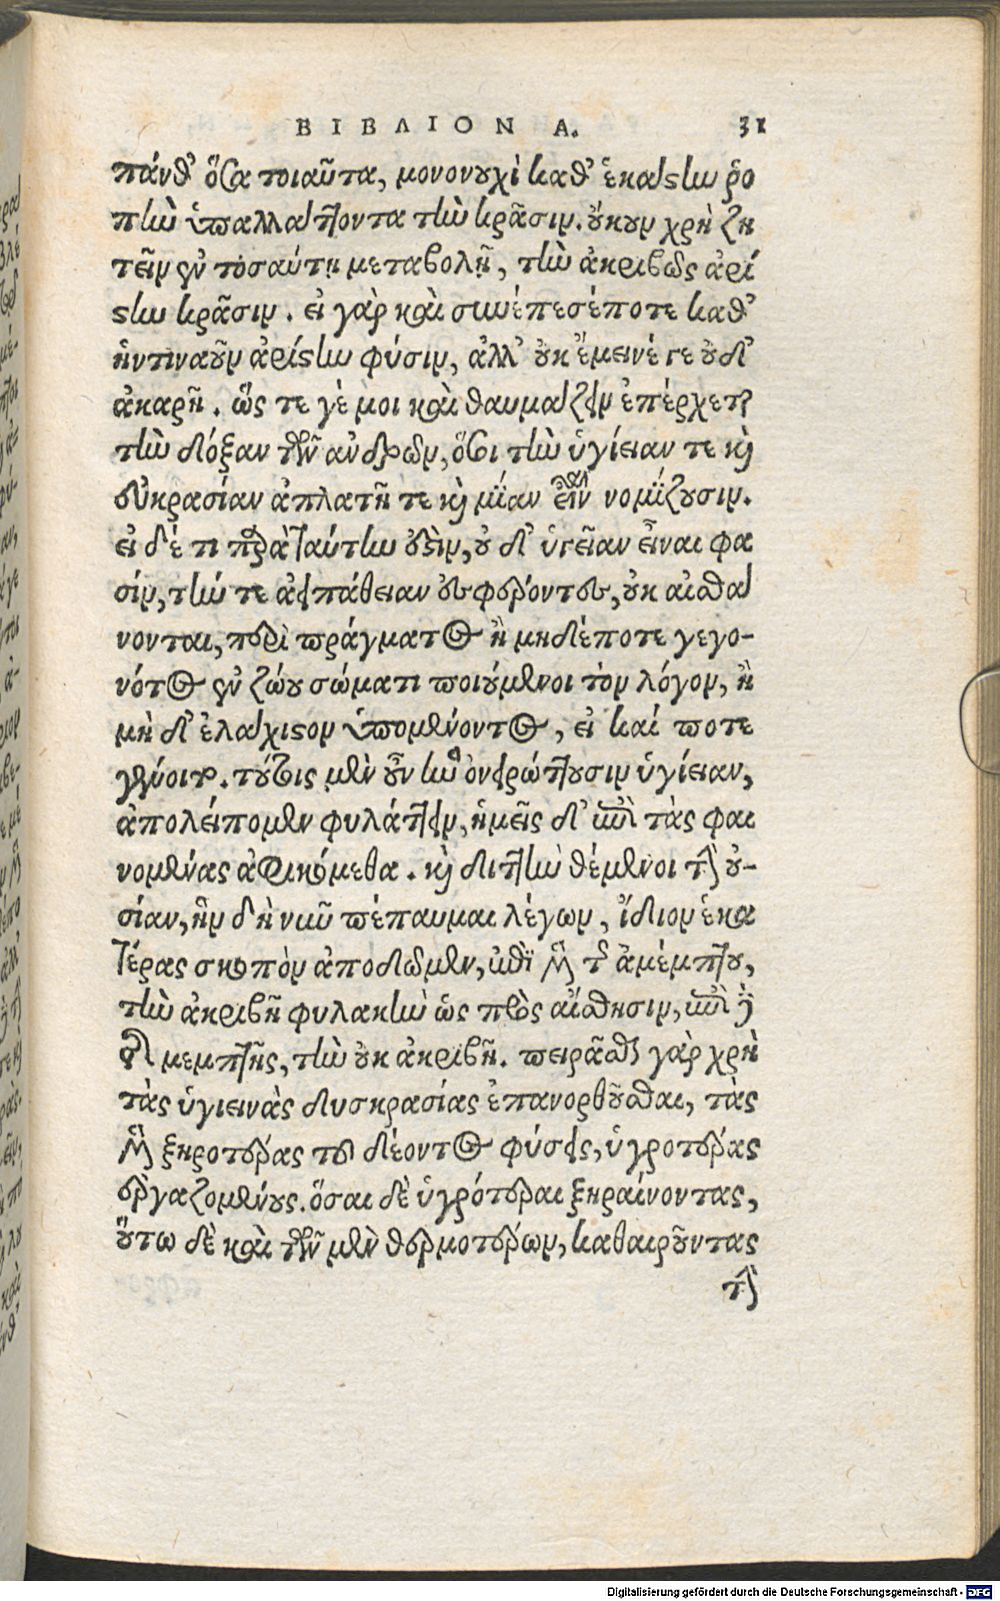 ΒΙΒΛΙΟΝ Α. 31
πάνθ' ὅσα τοιαῦτα, μονονουχὶ καθ' ἑκάστην ῥο
πὴν ὑπαλλάττοντα τὴν κρᾶσιν. οὔκουν χρὴ ζη
τεῖν ἐν τοσαύτῃ μεταβολῇ, τὴν ἀκριβῶς ἀρί
στην κρᾶσιν. εἰ γὰρ καὶ συνέπεσέ ποτε καθ'
ἡντιναοῦν ἀρίστην φύσιν, ἀλλ' οὐκ ἔμεινέ γε οὐδ'
ἀκαρῆ. ὥς τε γέ μοι καὶ θαυμάζειν ἐπέρχεται
τὴν δόξαν τῶν ἀνδρῶν, ὅσοι τὴν ὑγίειαν τε καὶ
εὐκρασίαν ἀπλατῆ τε καὶ μίαν εἶναι νομίζουσιν.
εἰ δέ τι παρὰ ταύτην ἐστὶν, οὐδ' ὑγείαν εἶναι φα
σίν, τήν τε ἀειπάθειαν εἰσφέροντες, οὐκ αἰσθά
νονται, περὶ πράγματος ἢ μηδέποτε γεγο-
νότος ἐν ζώου σώματι ποιούμενοι τὸν λόγον, ἢ
μὴ δ' ἐλάχιστον ὑπομένοντος, εἰ καί ποτε
γένοιτο. τούτοις μὲν οὖν ἣν ὀνειρώττουσιν ὑγίειαν,
ἀπολείπομεν φυλάττειν, ἡμεῖς δ' ἐπὶ τὰς φαι
νομένας ἀφικόμεθα. καὶ διττὴν θέμενοι τὴν οὐ-
σίαν, ἣν δὴ νῦν πέπαυμαι λέγων, ἴδιον ἑκα
τέρας σκοπὸν ἀποδῶμεν, ἐπὶ μὲν τῆς ἀμέμπτου,
τὴν ἀκριβῆ φυλακὴν ὡς πρὸς αἴσθησιν, ἐπὶ δὲ
τῆς μεμπτῆς, τὴν οὐκ ἀκριβῆ. πειρᾶσθαι γὰρ χρὴ
τὰς ὑγιεινὰς δυσκρασίας ἐπανορθοῦσθαι, τὰς
μὲν ξηροτέρας τοῦ δέοντος φύσεις, ὑγροτέρας
ἐργαζομένους. ὅσαι δὲ ὑγρότεραι ξηραίνοντας,
οὕτω δὲ καὶ τῶν μὲν θερμοτέρων, καθαιροῦντας
τὴν
Digitalisierung gefördert durch die Deutsche Forschungsgemeinschaft - DFG